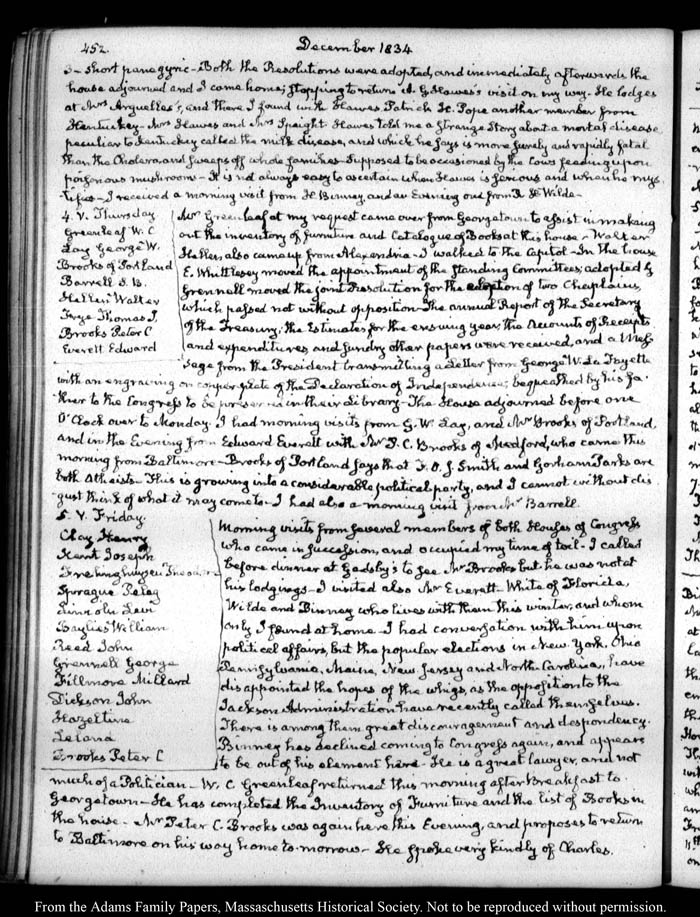 452.
December 1834
3 – Short panegyric – Both the Resolutions were adopted, and immediately afterwards the
house adjourned and I came home; stopping to return A. G. Hawes's visit on my way. He lodges
at Mrs Arguelles's, and there I found with Hawes Patrick H. Pope another member from
Kentucky – Mrs Hawes and Mrs Speight. Hawes told me a strange Story about a mortal disease
peculiar to Kentucky called the milk disease, and which he says is more surely and rapidly fatal
than the Cholera and sweeps off whole families – Supposed to be occasioned by the Cows feeding upon
poisonous mushrooms – It is not always easy to ascertain when Hawes is serious and when he mys-
tifies – I received a morning visit from H. Binney, and an Evening one from R. H. Wilde –
4. V. Thursday
Greenleaf W. C
Lay George W.
Brooks of Portland
Barrell
Hellen Walter
Frye Thomas J.
Brooks Peter C
Everett Edward
Mr Greenleaf at my request came over from Georgetown to assist in making
out the inventory of furniture and Catalogue of Books at this house – Walter
Hellen also came up from Alexandria – I walked to the Capitol – In the house
E. Whittlesey moved the appointment of the standing Committees; adopted
Grennell moved the joint Resolution for the adoption of two Chaplains,
which passed not without opposition – The annual Report of the Secretary
of the Treasury; the Estimates for the ensuing year, the Accounts of Receipts
and expenditures, and sundry other papers were received, and a Mes-
sage from the President transmitting a Letter from George W. La Fayette
with an engraving on copper plate of the Declaration of Independence; bequeathed by his fa-
ther to the Congress to be preserved in their Library – The House adjourned before one
O'Clock over to Monday. I had morning visits from G. W. Lay, and Mr Brooks of Portland,
and in the Evening from Edward Everett with Mr P. C. Brooks of Medford, who came this
morning from Baltimore – Brooks of Portland says that F. O. J. Smith and Gorham Parks are
both Atheists – This is growing into a considerable political party, and I cannot without dis-
gust think of what it may come to – I had also a morning visit from Mr Barrell.
5. V. Friday
Clay Henry
Kent Joseph
Frelinghuysen Theodore
Sprague Peleg
Lincoln Levi
Baylies William
Reed John
Grennell George
Fillmore Millard
Dickson John
Hazeltine
Leland
Brooks Peter C
Morning visits from several members of both Houses of Congress
who came in succession, and occupied my time of toil – I called
before dinner at Gadsby's to see Mr Brooks but he was not at
his lodgings – I visited also Mr Everett – White of Florida,
Wilde and Binney who lives with them this winter, and whom
only I found at home – I had conversation with him upon
political affairs, but the popular elections in New York, Ohio
Pennsylvania, Maine, New Jersey and North Carolina, have
disappointed the hopes of the whigs, as the opposition to the
Jackson Administration have recently called themselves.
There is among them great discouragement and despondency.
Binney has declined coming to Congress again, and appears
to be out of his element here – He is a great lawyer, and not
much of a Politician – W. C. Greenleaf returned this morning after breakfast to
Georgetown – He has completed the Inventory of Furniture and the list of Books in
the house – Mr Peter C. Brooks was again here this Evening, and proposes to return
to Baltimore on his way home to-morrow – He spoke very kindly of Charles.
From the Adams Family Papers, Massachusetts Historical Society. Not to be reproduced without permission.